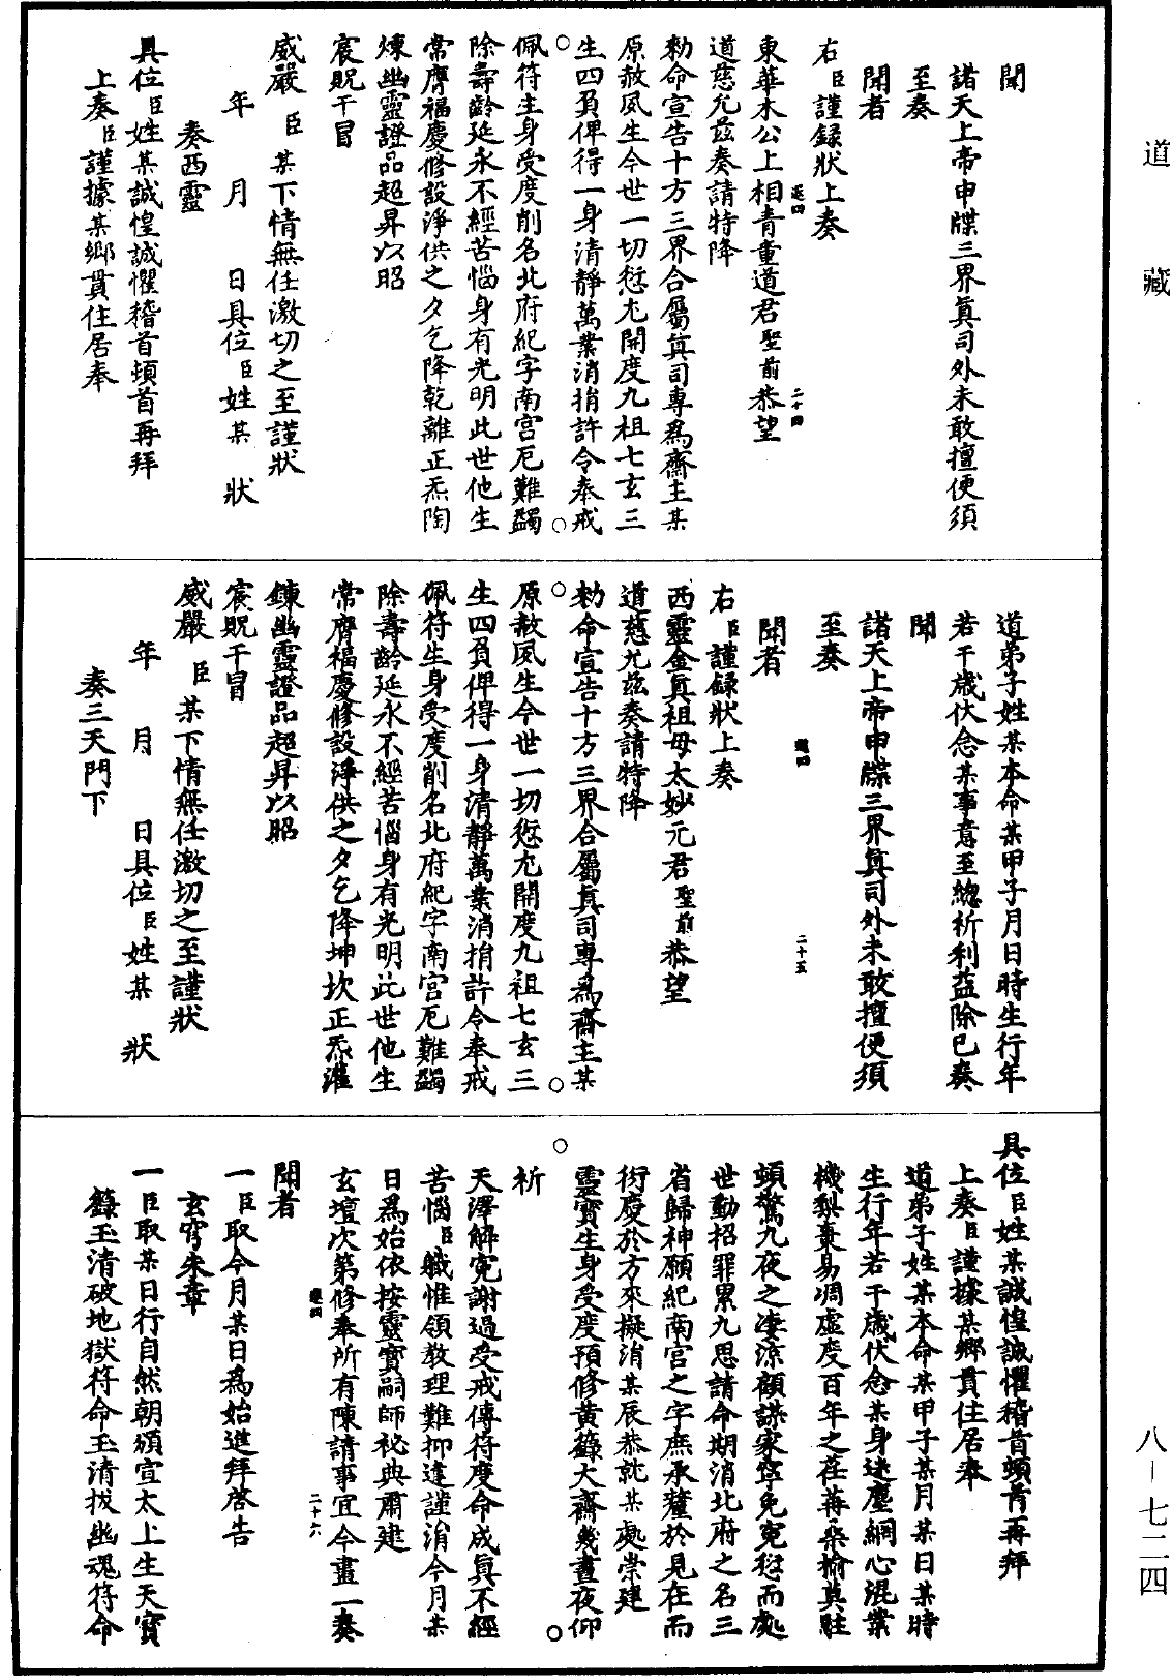 道藏
聞
諸天上帝申牒三界眞司外未敢擅便須
至奏
聞者
右臣謹錄狀上奏
東華木公上相青童道君聖前恭望
道慈允茲奏請特降
勑命宣告十方三界合屬眞司專爲齋主某
原赦夙生今世一切愆尤開度九祖七玄三
生四負俾得一身清靜萬業消捐許令奉戒
佩符生身受度削名北府紀字南宮厄難蠲
除壽齡延永不經苦惱身有光明此世他生
常膺福慶修設淨供之夕乞降乾離正炁陶
煉幽靈證品超昇以昭
宸貺干冒
威嚴臣某下情無任激切之至謹狀
年 月 日具位臣姓某 狀
奏西靈
具位臣姓某誠惶誠懼稽首頓首再拜
上奏臣謹據某鄉貫住居奉
二十四
道弟子姓某本命某甲子月日時生行年
若干歲伏念某事意至總祈利益除已奏
聞
諸天上帝申牒三界眞司外未敢擅便須
至奏
聞者
右臣謹錄狀上奏
西靈金眞祖母太妙元君聖前恭望
道慈允茲奏請特降
勑命宣告十方三界合屬眞司專爲齋主某
原赦夙生今世一切愆尤開度九祖七玄三
生四負俾得一身清靜萬業消捐許令奉戒
佩符生身受度削名北府紀字南宮厄難蠲
除壽齡延永不經苦惱身有光明此世他生
常膺福慶修設淨供之夕乞降坤坎正炁灌
鍊幽靈證品超昇以昭
宸貺干冒
威嚴臣某下情無任激切之至謹狀
年 月 日具位臣姓某 狀
奏三天門下
二十五
具位臣姓某誠惶誠懼稽首頓首再拜
上奏臣謹據某鄉貫住居奉
道弟子姓某本命某甲子某月某日某時
生行年若干歲伏念某身迷塵網心混業
機梨棗易凋虛度百年之荏苒桑榆莫駐
頓驚九夜之凄涼顧謀家寧免寃愆而處
世動招罪累九思請命期消北府之名三
省歸神願紀南宮之字庶承釐於見在而
衍慶於方來擬消某辰恭就某處崇建
靈寶生身受度預修黃籙大齋幾晝夜仰
祈
天澤解寃謝過受戒傳符度命成眞不經
苦惱臣職惟領教理難抑違謹涓今月某
日爲始依按靈寶嗣師祕典肅建
玄壇次第修奉所有陳請事宜今畫一奏
聞者
一臣取今月某日爲始進拜啓告
玄穹朱章
一臣取某日行自然朝頒宣太上生天寶
籙玉清破地獄符命玉清拔幽魂符命
二十六
八－七二四